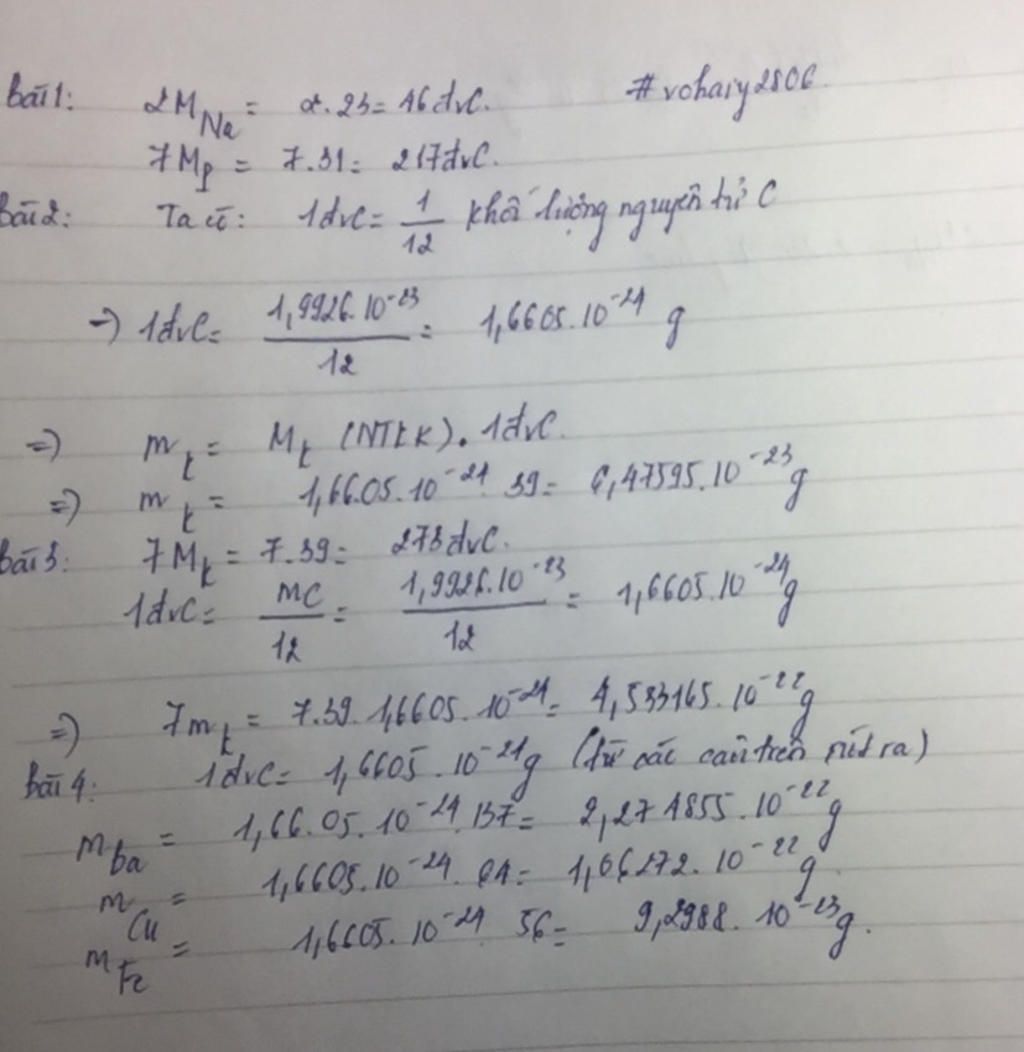 Bài 1: 2M Na = 2.23 = 46 đvC. #vohaiy2806.
7M P = 7.31 = 217 đvC.
Bài 2: Ta có: 1đvC = 1/12 khối lượng nguyên tử C
=) 1đvC = 1,9926.10⁻²³/12 = 1,6605.10⁻²⁴ g
=) m k = M k (NTLK). 1đvC.
=) m k = 1,66.05.10⁻²⁴ 39 = 6,47595.10⁻²³ g
Bài 3: 7M k = 7.39 = 273 đvC.
1đvC = mC/12 = 1,9926.10⁻²³/12 = 1,6605.10⁻²⁴ g
=) 7m k = 7.39.1,6605.10⁻²⁴ = 4,533165.10⁻²² g
Bài 4: 1đvC = 1,6605.10⁻²⁴ g (từ các câu trên rút ra)
m Ba = 1,66.05.10⁻²⁴.137 = 2,274855.10⁻²² g
m Cu = 1,6605.10⁻²⁴. 64 = 1,06272.10⁻²² g.
m Fe = 1,6605.10⁻²⁴ 56 = 9,2988.10⁻²³ g.